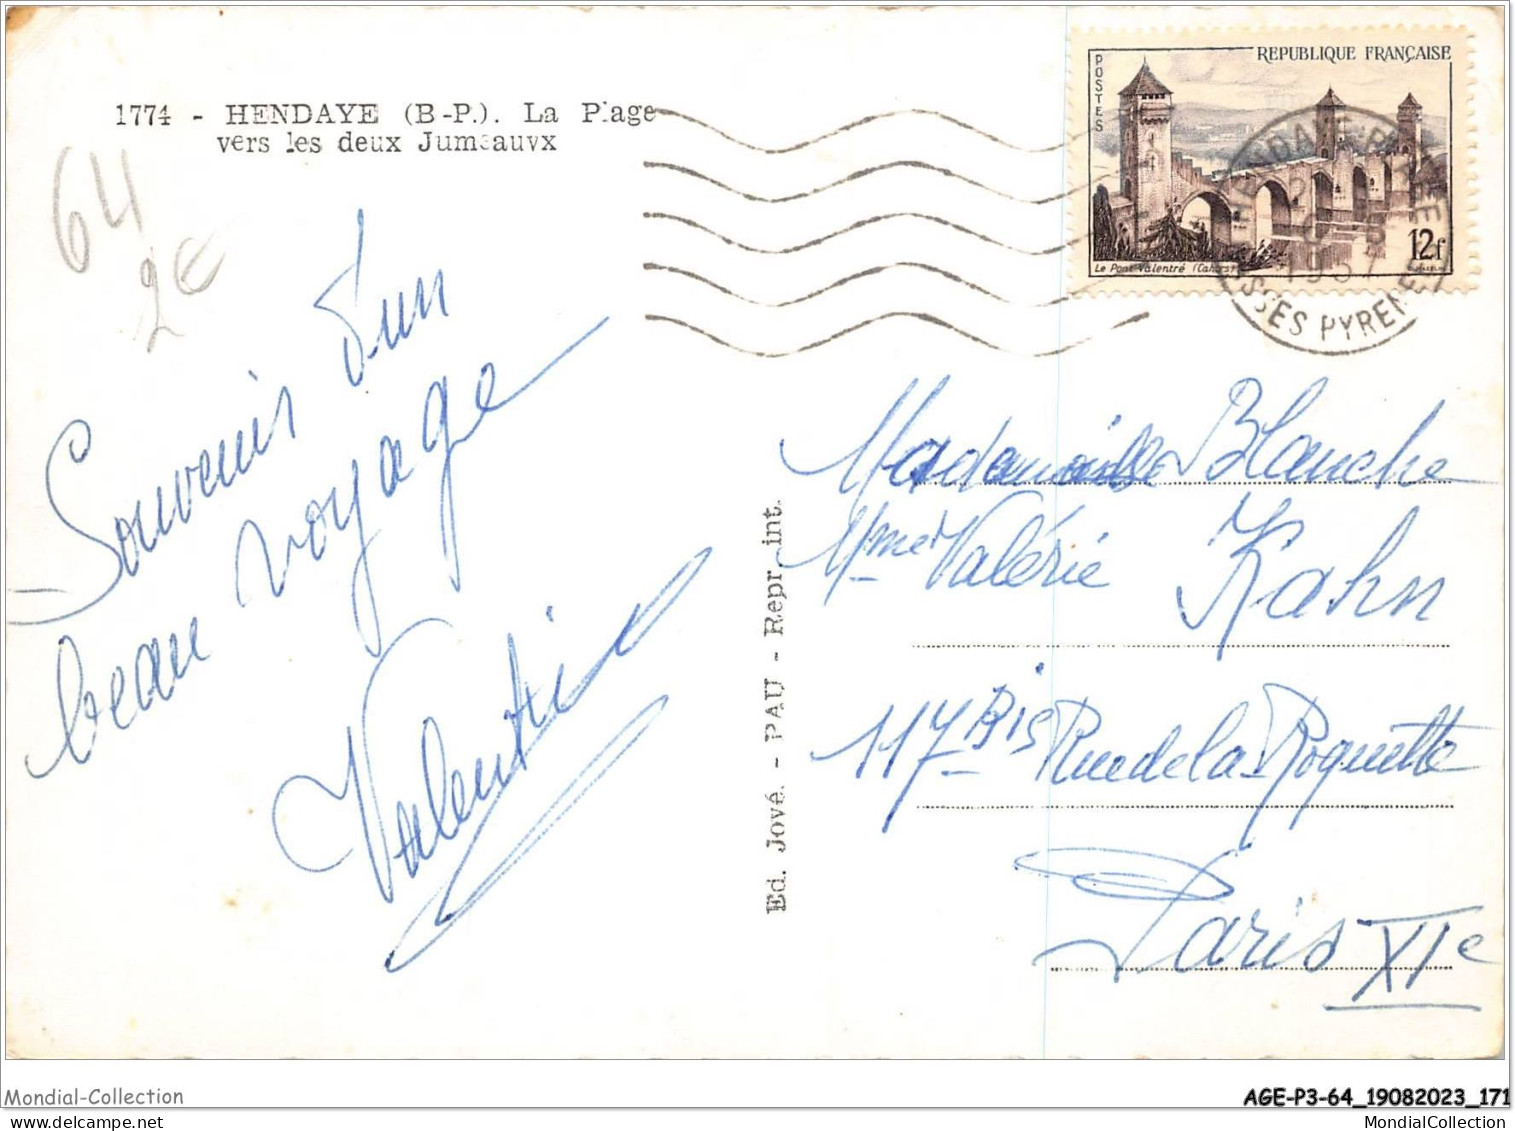 1774 - HENDAYE (B-P.). La Plage
vers les deux Jumeauvx
64
2€
Souvenir d'un
beau voyage
Valentin
Ed. Jové. - PAU - Repr. int.
POSTES
REPUBLIQUE FRANÇAISE
Le Pont Valentré (Cahors)
12f
HENDAYE
1957
BSSES PYRENEES
Mademoiselle Blanche
Mme Valérie Kahn
117 Bis Rue de la Roquette
Paris XIe
Mondial-Collection
AGE-P3-64_19082023_171
delcampe.net
MondialCollection